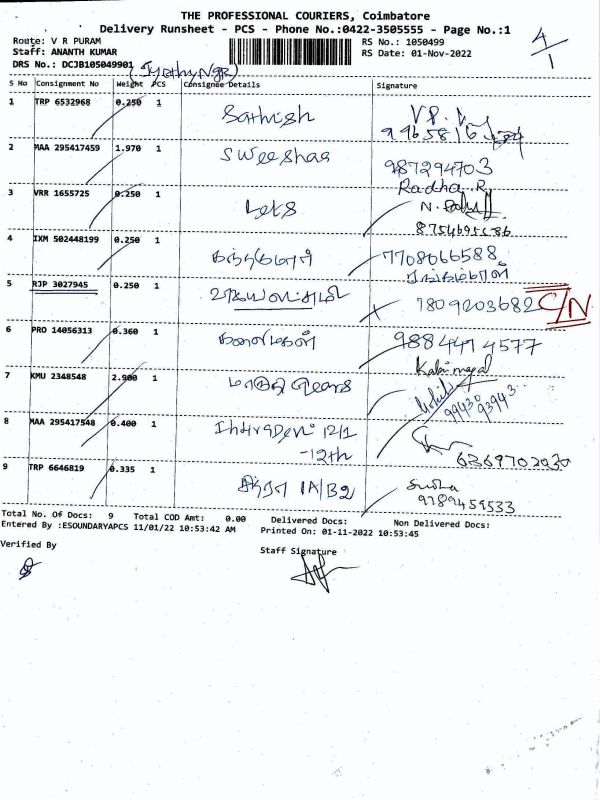 THE PROFESSIONAL COURIERS, Coimbatore
Delivery Runsheet - PCS - Phone No.:0422-3505555 - Page No.:1
Route: V R PURAM
RS No.: 1050499
4/1
Staff: ANANTH KUMAR
RS Date: 01-Nov-2022
DRS No.: DCJB105049901
S No Consignment No Weight PCS Consignee Details Signature
1 TRP 6532968 0.250 1 Sathish
2 MAA 295417459 1.970 1 Sweeshaa 987294703
Radha.R
3 VRR 1655725 0.250 1 Lets
8754695686
4 IXM 502448199 0.250 1 7708066588
5 RJP 3027945 0.250 1 7809203682 C/N
6 PRO 14056313 0.360 1 கலைமகள் 9884491 4577
Kalaimagal
7 KMU 2348548 2.900 1 Gears
99430 93943
8 MAA 295417548 0.400 1 12/1
-12th
6369702030
9 TRP 6646819 0.335 1 1A/B2 Sudha
9789459533
Total No. Of Docs: 9 Total COD Amt: 0.00 Delivered Docs: Non Delivered Docs:
Entered By :ESOUNDARYAPCS 11/01/22 10:53:42 AM Printed On: 01-11-2022 10:53:45
Verified By
Staff Signature